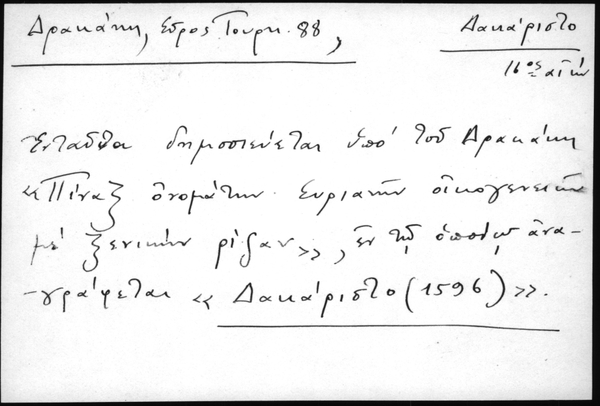 Δρακάκη, Σῦρος Τουρκ. 88,
Δακάριστο
16ος αἰών
Ἐνταῦθα δημοσιεύεται ὑπό τοῦ Δρακάκη
«Πίναξ ὀνομάτων Συριανῶν οἰκογενειῶν
μέ ξενικήν ρίζαν», ἐν τῷ ὁποίῳ ἀνα-
-γράφεται «Δακάριστο (1596)».